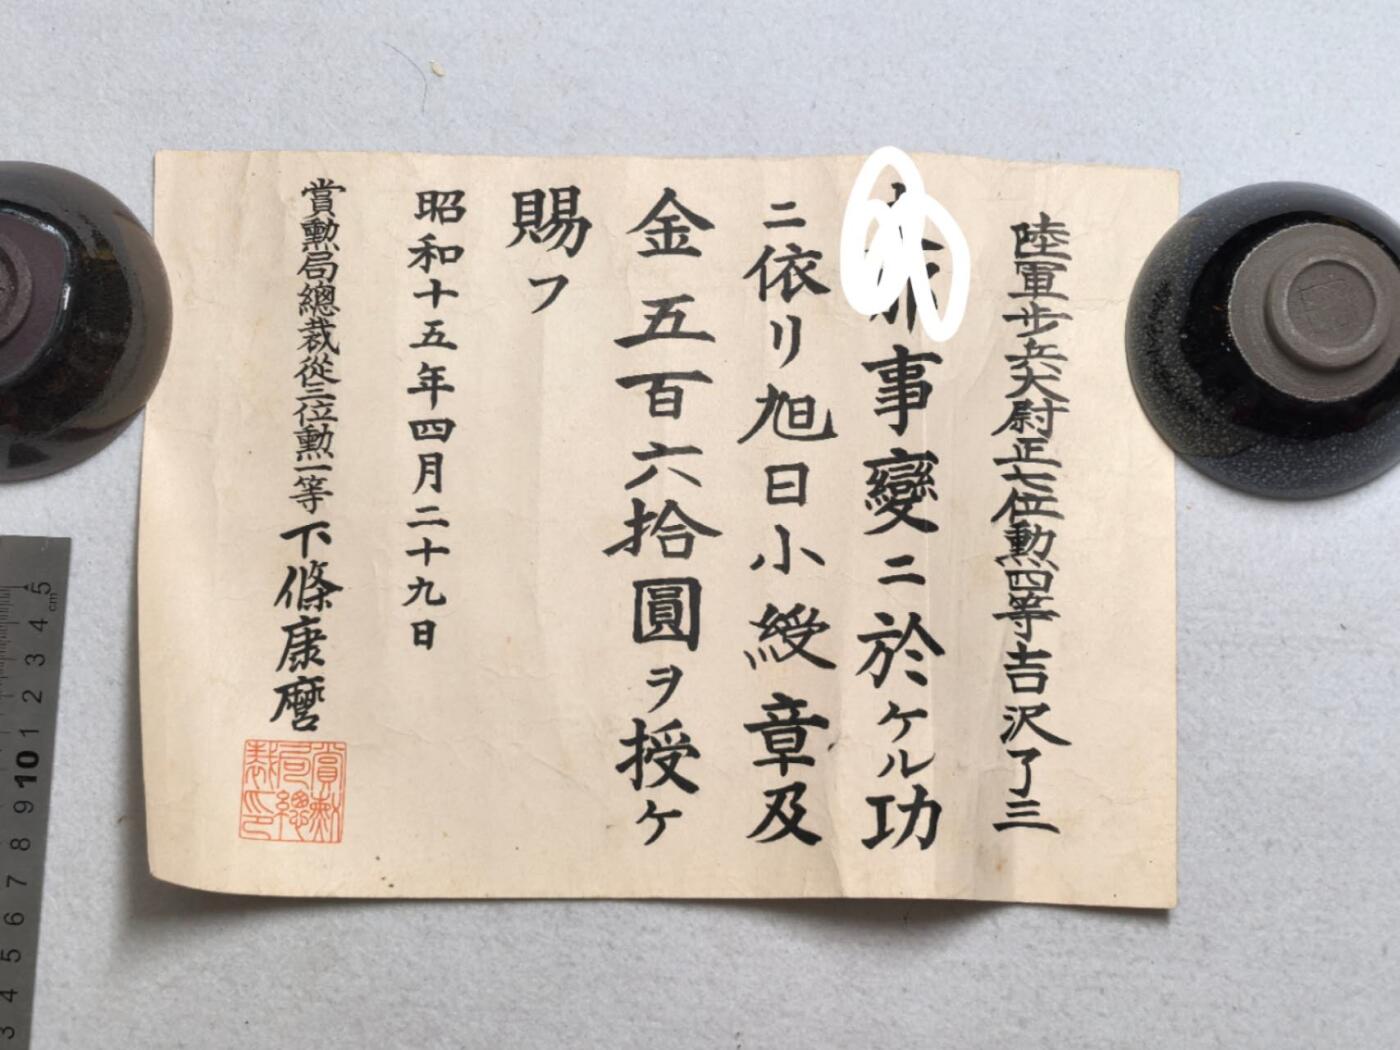 陸軍歩兵大尉正七位勲四等吉沢了三
事變ニ於ケル功
ニ依リ旭日小綬章及
金五百六拾圓ヲ授ケ
賜フ
昭和十五年四月二十九日
賞勲局總裁從三位勲一等下條康麿
賞勲局總裁印
5
cm
4
3
2
1
10
9
8
7
6
5
4
3